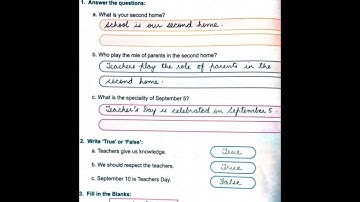 1. Answer the questions:
a. What is your second home?
School is our second home.
b. Who play the role of parents in the second home?
Teachers play the role of parents in the
second home.
c. What is the speciality of September 5?
Teacher's Day is celebrated on September 5.
2. Write 'True' or 'False':
a. Teachers give us knowledge. True
b. We should respect the teachers. True
c. September 10 is Teachers Day. False
3. Fill in the Blanks: